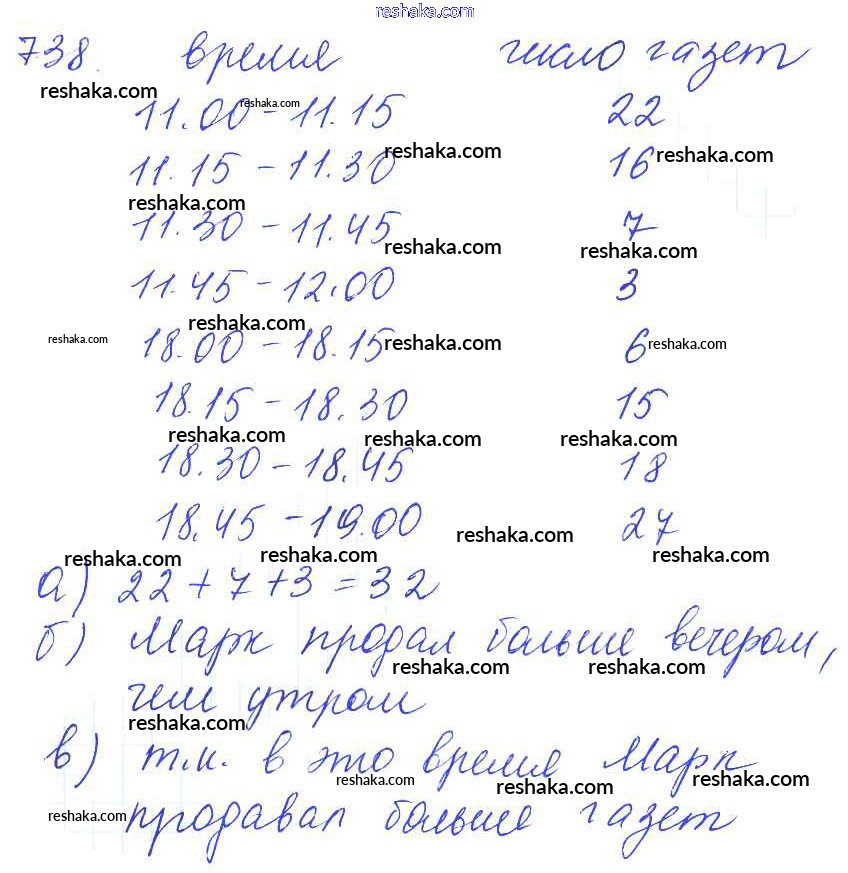 reshaka.com
738. время число газет
reshaka.com reshaka.com
11.00 - 11.15 22
reshaka.com reshaka.com
11.15 - 11.30 16
reshaka.com
11.30 - 11.45 7
reshaka.com reshaka.com
11.45 - 12.00 3
reshaka.com
reshaka.com reshaka.com reshaka.com
18.00 - 18.15 6
18.15 - 18.30 15
reshaka.com reshaka.com reshaka.com
18.30 - 18.45 18
18.45 - 19.00 27
reshaka.com
reshaka.com reshaka.com reshaka.com
а) 22 + 7 + 3 = 32
б) Марк продал больше вечером,
reshaka.com reshaka.com
чем утром
reshaka.com
в) т.к. в это время Марк
reshaka.com reshaka.com reshaka.com
reshaka.com
продавал больше газет